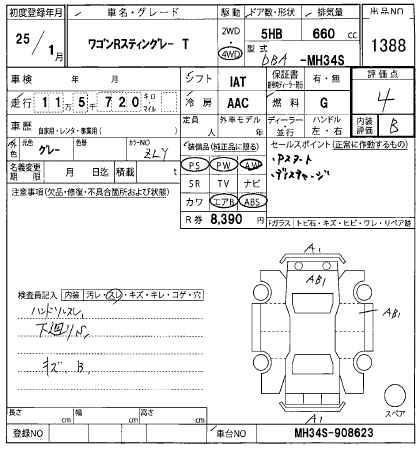 初度登録年月 車名・グレード 駆動 ドア数・形状 排気量 出品NO
25/1月 ワゴンRスティングレー T 2WD・4WD 5HB 660 cc 1388
型式 DBA -MH34S
車検 年 月 シフト IAT 保証書 有・無 評価点
走行 11万5千720キロ・マイル 冷房 AAC 燃料 G 4
車歴 自家用・レンタ・事業用( ) 定員 人 外車モデル 年 ディーラー・並行 ハンドル 左・右 内装評価 B
外色 元色 グレー 色替 カラーNO ZLY 装備品(純正品に限る) セールスポイント(正常に作動するもの)
名義変更期限 月 日迄 積載 t PS PW AW ・Pスタート
注意事項(欠品・修復・不具合箇所および状態) SR TV ナビ ・ディスチャージ
カワ エアB ABS
R券 8,390 円 Fガラス トビ石・キズ・ヒビ・ワレ・リペア跡
A1
AB1
AB1
検査員記入 内装 汚レ・スレ・キズ・キレ・コゲ・穴
ハンドルスレ
下廻りS
キズ、B
A1
スペア
長さ cm 幅 cm 高さ cm
登録NO 車台NO MH34S-908623